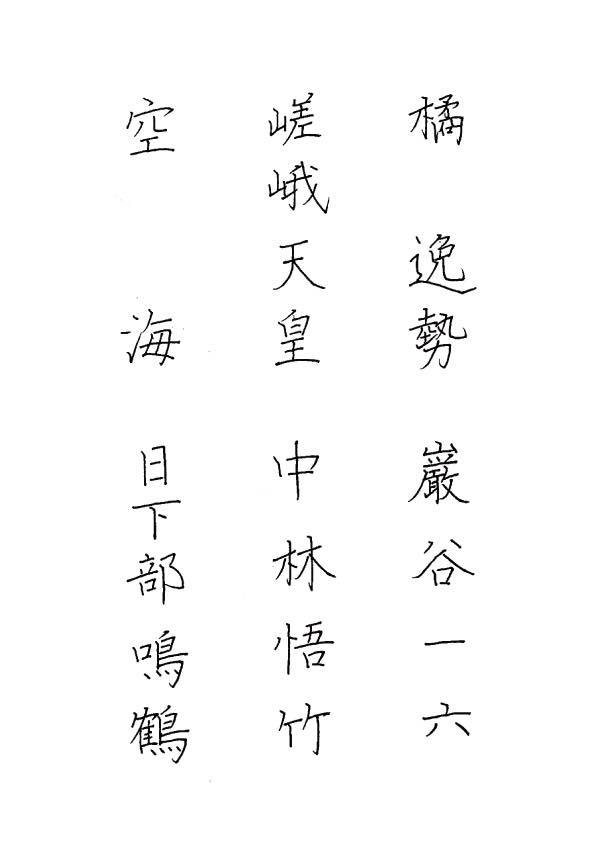 橘逸勢
巌谷一六
嵯峨天皇
中林悟竹
空海
日下部鳴鶴